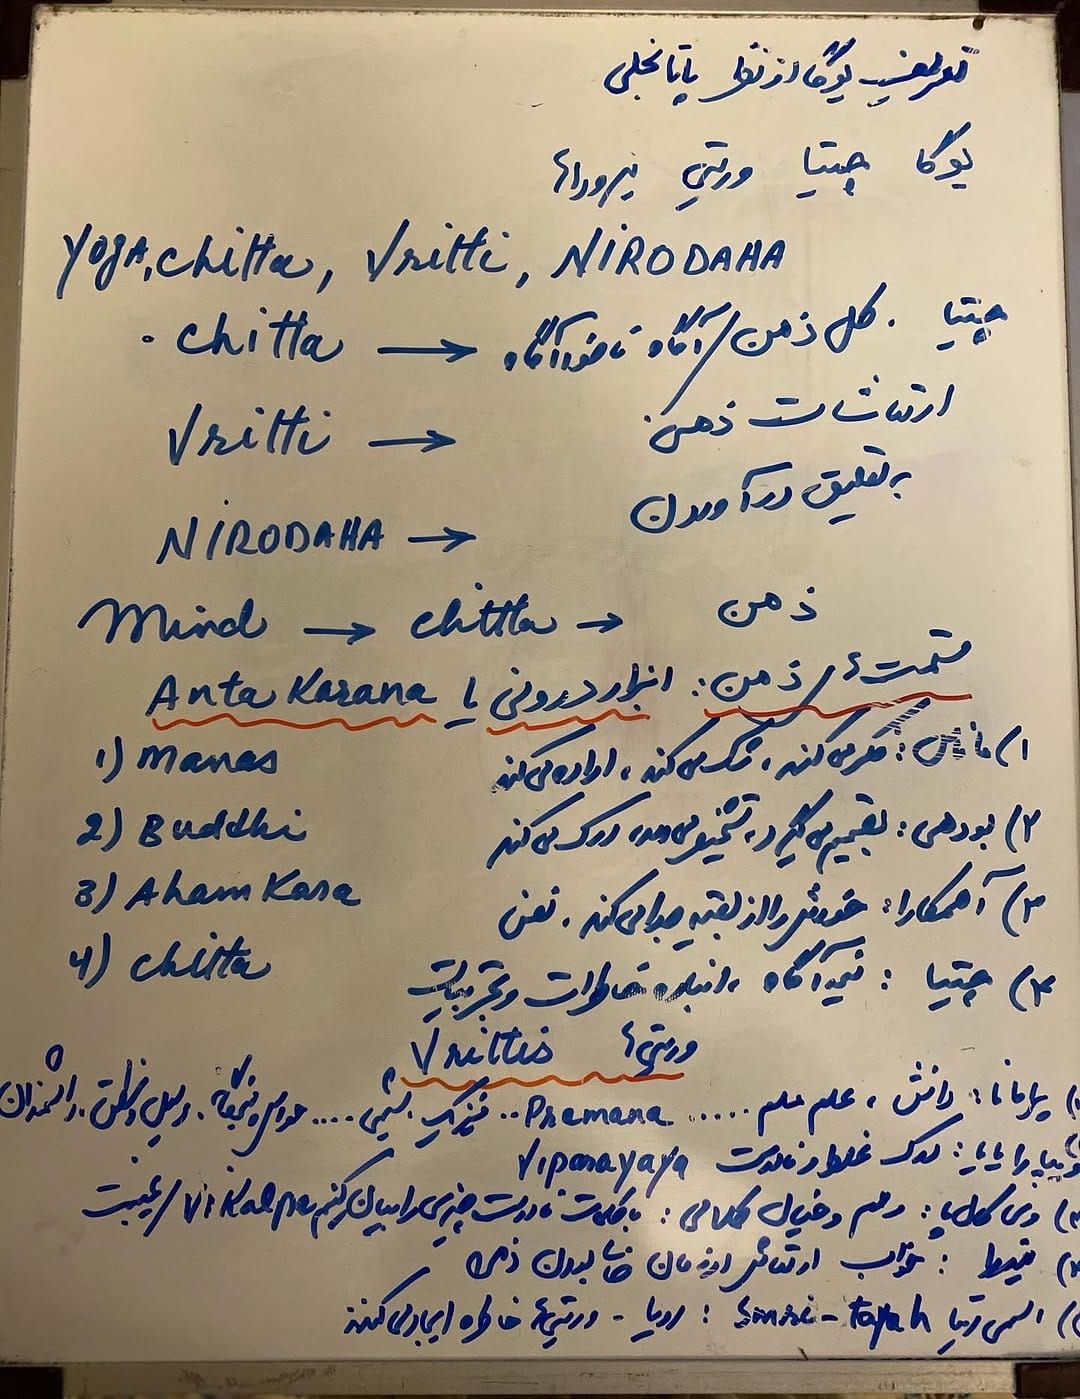 تعریف یوگا از نظر پاتانجلی
یوگا چیتا ورتی نیروداها
YOGA, chitta, Vritti, NIRODAHA
چیتا . کل ذهن / آگاه ناخودآگاه ← chitta
ارتعاشات ذهنی ← Vritti
به تعلیق درآوردن ← NIRODAHA
Mind → chitta → ذهن
قسمت‌های ذهن: ابزار درونی یا Anta Karana
۱) ماناس: فکر می‌کند، شک می‌کند، اراده می‌کند 1) Manas
۲) بودهی: تصمیم می‌گیرد، تشخیص می‌دهد، درک می‌کند 2) Buddhi
۳) آهمکارا: خودش را از بقیه جدا می‌کند. نفس 3) Aham Kara
۴) چیتا: نیمه‌آگاه، انباره خاطرات و تجربیات 4) chitta
ورتی‌ها Vrittis
پرامانا: دانش، علم ..... Pramana .. فیزیک شیمی .... حواس پنجگانه، دلیل و منطق، دانشمندان
درک غلط و نادرست Viparayaya
وی کالپا: وهم و خیال کلامی: با کلمات نادرست چیزی را بیان کنیم Vi Kalpa / غیبت
نیدرا: خواب ارتعاش از زمان خالی بودن ذهن
اسمی‌رتیا Smri-tayah: رویا - ورتی‌ها خاطره ایجاد می‌کنند